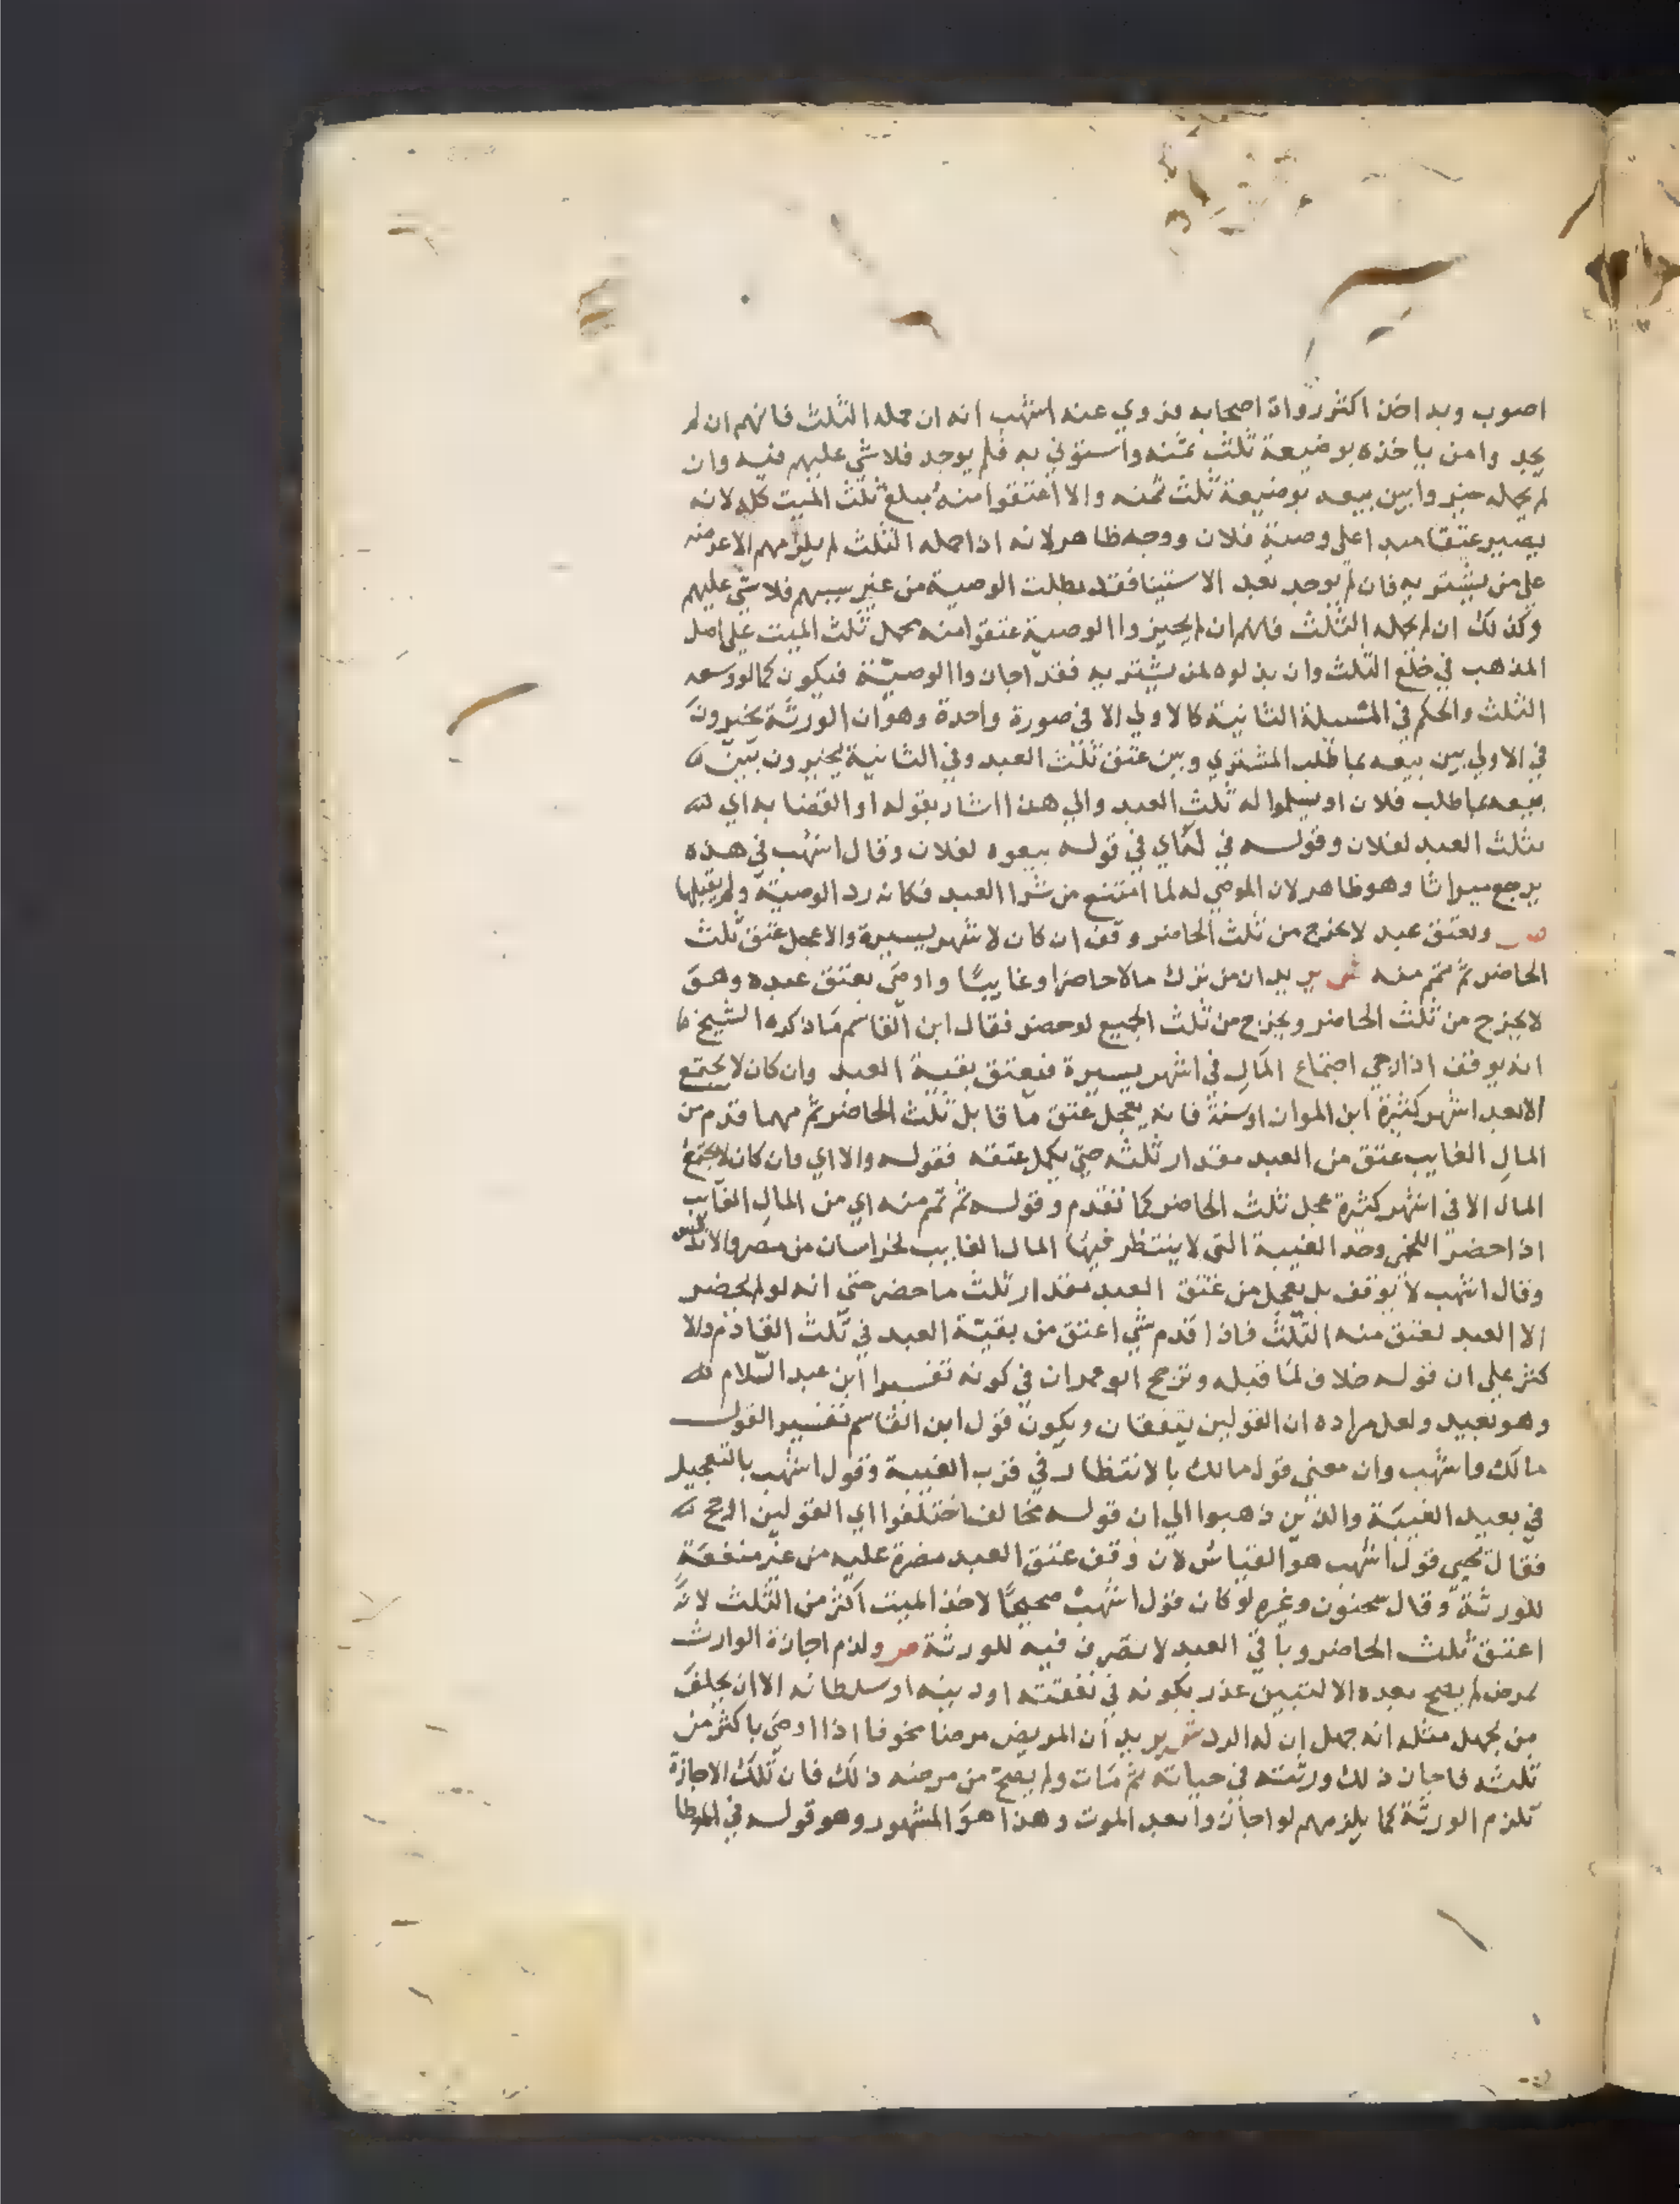 اصوب وبه اخذ اكثر رواة اصحابه فروي عنه اشهب انه ان حمله الثلث فانهم ان لم
يجدوا من ياخذه بوضيعة ثلث ثمنه واستوني به فلم يوجد فلا شي عليهم فيه وان
لم يحمله خيروا بين بيعه بوضيعة ثلث ثمنه والا اعتقوا منه مبلغ ثلث الميت كله لانه
يصير عتقا مبدا على وصية فلان ووجه ظاهر لانه اذا حمله الثلث لم يلزمهم الا عرضه
على من يشتريه فان لم يوجد بعد الاستينا فقد بطلت الوصية من غير سببهم فلا شي عليهم
وكذلك ان لم يحمله الثلث فانهم ان لم يجيزوا الوصية عتقوا منه محمل ثلث الميت على اصل
المذهب في خلع الثلث وان بذلوه لمن يشتريه فقد اجازوا الوصية فيكون كما لو وسعه
الثلث والحكم في المسيلة الثانية كالاولي الا في صورة واحدة وهو ان الورثة يخيرون
في الاولي بين بيعه بما طلب المشتري وبين عتق ثلث العبد وفي الثانية يخيرون بين
بيعه بما طلب فلان او يسلموا له ثلث العبد والي هذا اشار بقوله او القضا به اي
بثلث العبد لفلان وقوله في لهاي في قوله بيعوه لفلان وقال اشهب في هذه
يرجع ميراثا وهو ظاهر لان الموصي له لما امتنع من شرا العبد فكانه رد الوصية ولم يقبلها
ص وبعتق عبد لا يخرج من ثلث الحاضر وقف ان كان لاشهر يسيرة والا عجل عتق ثلث
الحاضر ثم تمم منه ش يريد ان من ترك مالا حاضرا وغايبا واوصى بعتق عبده وهو
لا يخرج من ثلث الحاضر ويخرج من ثلث الجميع لو حضر فقال ابن القاسم ما ذكره الشيخ
انه يوقف اذا رجي اجتماع المال في اشهر يسيرة فيعتق بقية العبد وان كان لا يجتمع
الا بعد اشهر كثيرة ابن المواز او سنة فانه يعجل عتق ما قابل ثلث الحاضر ثم مهما قدم من
المال الغايب عتق من العبد مقدار ثلثه حتى يكمل عتقه فقوله والا اي وان كان لا يجتمع
المال الا في اشهر كثيرة عجل ثلث الحاضر كما تقدم وقوله ثم تمم منه اي من المال الغايب
اذا حضر اللخمي وحد الغيبة التي لا ينتظر فيها المال الغايب لخراسان من مصر والاندلس
وقال اشهب لا يوقف بل يعجل من عتق العبد مقدار ثلث ما حضر حتى انه لو لم يحضر
الا العبد لعتق منه الثلث فاذا قدم شي اعتق من بقية العبد في ثلث القادم والا
كثر على ان قوله خلاف لما قبله وترجح ابو عمران في كونه تفسيرا ابن عبد السلام
وهو بعيد ولعل مراده ان القولين يتفقان ويكون قول ابن القاسم تفسيرا لقول
مالك واشهب وان معنى قول مالك بالانتظار في قرب الغيبة وقول اشهب بالتعجيل
في بعيد الغيبة والذين ذهبوا الي ان قوله مخالف اختلفوا اي القولين ارجح
فقال يحيى قول اشهب هو القياس لان وقف عتق العبد مضرة عليه من غير منفعة
للورثة وقال سحنون وغيره لو كان قول اشهب صحيحا لاخذ الميت اكثر من الثلث لانه
اعتق ثلث الحاضر وباقي العبد لا تصرف فيه للورثة ص ولزم اجازة الوارث
بمرض لم يصح بعده الا لتبين عذر بكونه في نفقته او دينه او سلطانه الا ان يحلف
من يجهل مثله انه جهل ان له الرد ش يريد ان المريض مرضا مخوفا اذا اوصى باكثر من
ثلثه فاجاز ذلك ورثته في حياته ثم مات ولم يصح من مرضه ذلك فان تلك الاجازة
تلزم الورثة كما يلزمهم لو اجازوا بعد الموت وهذا هو المشهور وهو قوله في الموطا